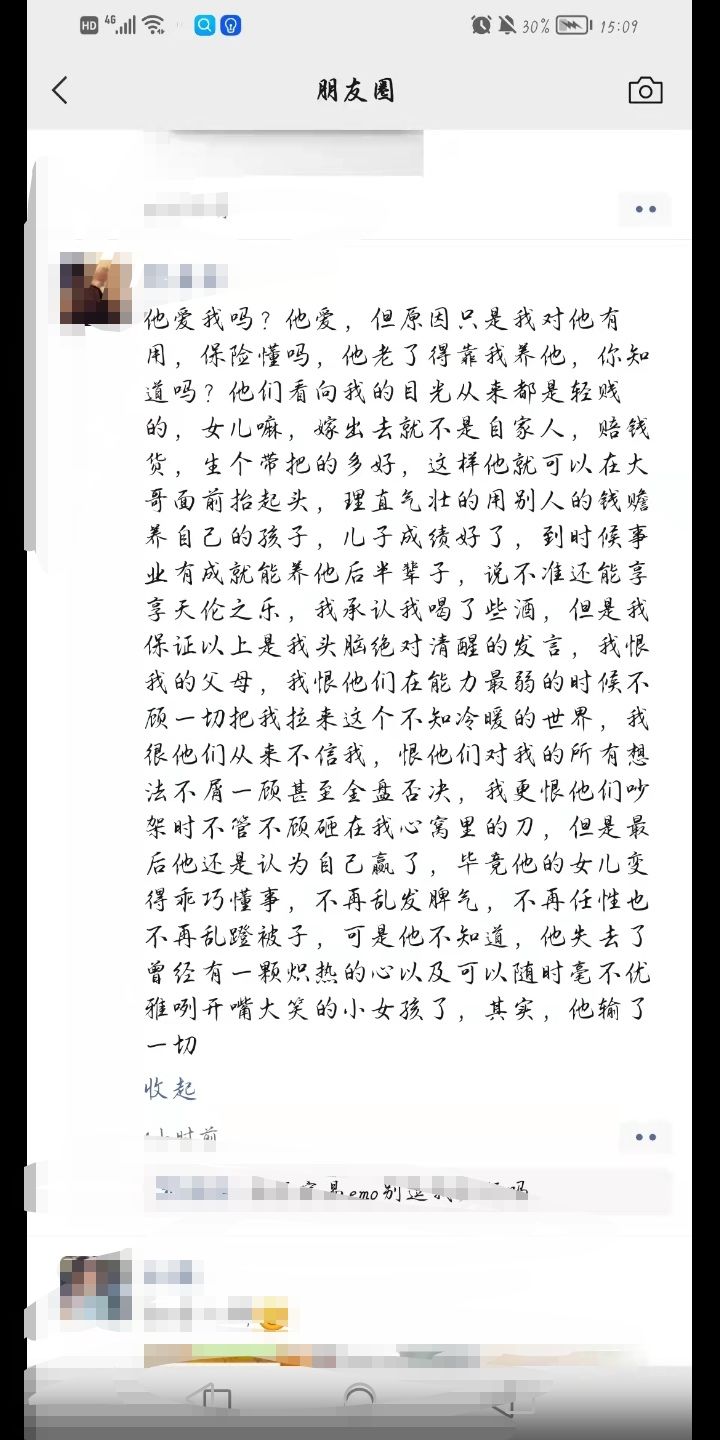 HD 4G 30% 15:09
朋友圈
他爱我吗？他爱，但原因只是我对他有
用，保险懂吗，他老了得靠我养他，你知
道吗？他们看向我的目光从来都是轻贱
的，女儿嘛，嫁出去就不是自家人，赔钱
货，生个带把的多好，这样他就可以在大
哥面前抬起头，理直气壮的用别人的钱赡
养自己的孩子，儿子成绩好了，到时候事
业有成就能养他后半辈子，说不准还能享
享天伦之乐，我承认我喝了些酒，但是我
保证以上是我头脑绝对清醒的发言，我恨
我的父母，我恨他们在能力最弱的时候不
顾一切把我拉来这个不知冷暖的世界，我
很他们从来不信我，恨他们对我的所有想
法不屑一顾甚至全盘否决，我更恨他们吵
架时不管不顾砸在我心窝里的刀，但是最
后他还是认为自己赢了，毕竟他的女儿变
得乖巧懂事，不再乱发脾气，不再任性也
不再乱蹬被子，可是他不知道，他失去了
曾经有一颗炽热的心以及可以随时毫不优
雅咧开嘴大笑的小女孩了，其实，他输了
一切
收起
小时前
emo别